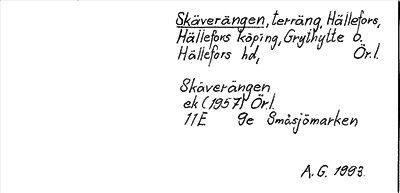 Skäverängen, terräng, Hällefors,
Hällefors köping, Grythytte o.
Hällefors hd, Ör.l.
Skäverängen
ek (1957) Ör.l.
11E 9e Småsjömarken
A.G. 1993.